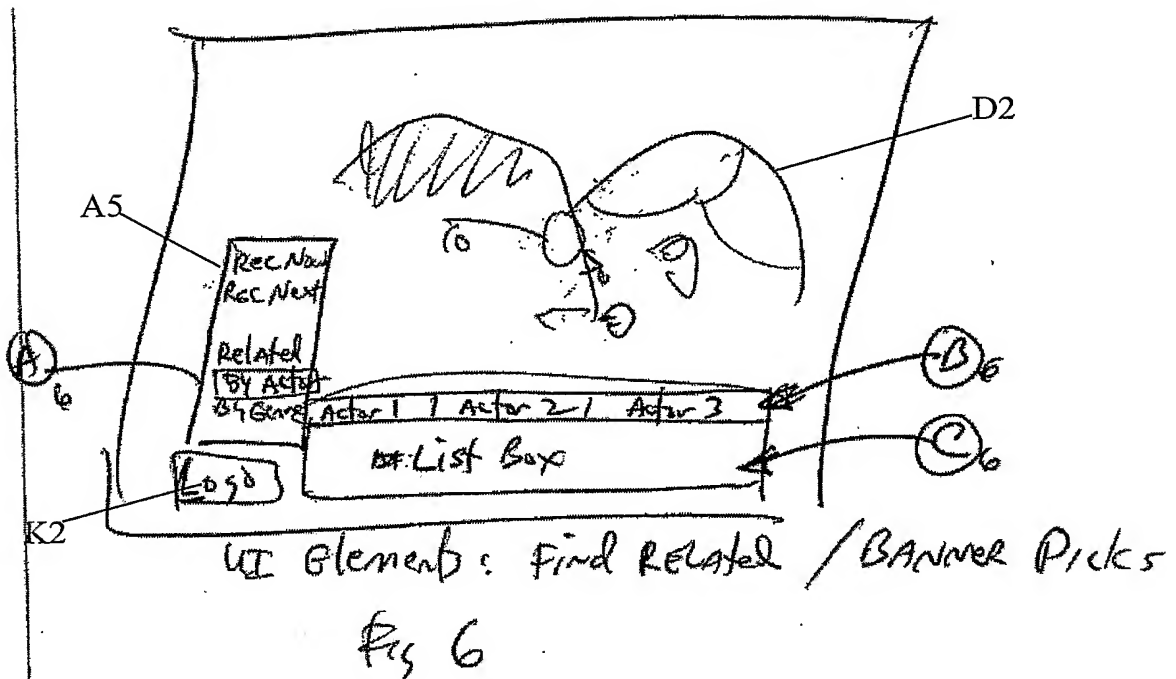 D2
A5
Rec Now
Rec Next
A6
Related
By Actor
B6
By Genre
Actor 1 | Actor 2 | Actor 3
List Box
C6
Logo
K2
UI Elements: Find Related / BANNER Picks
Fig 6